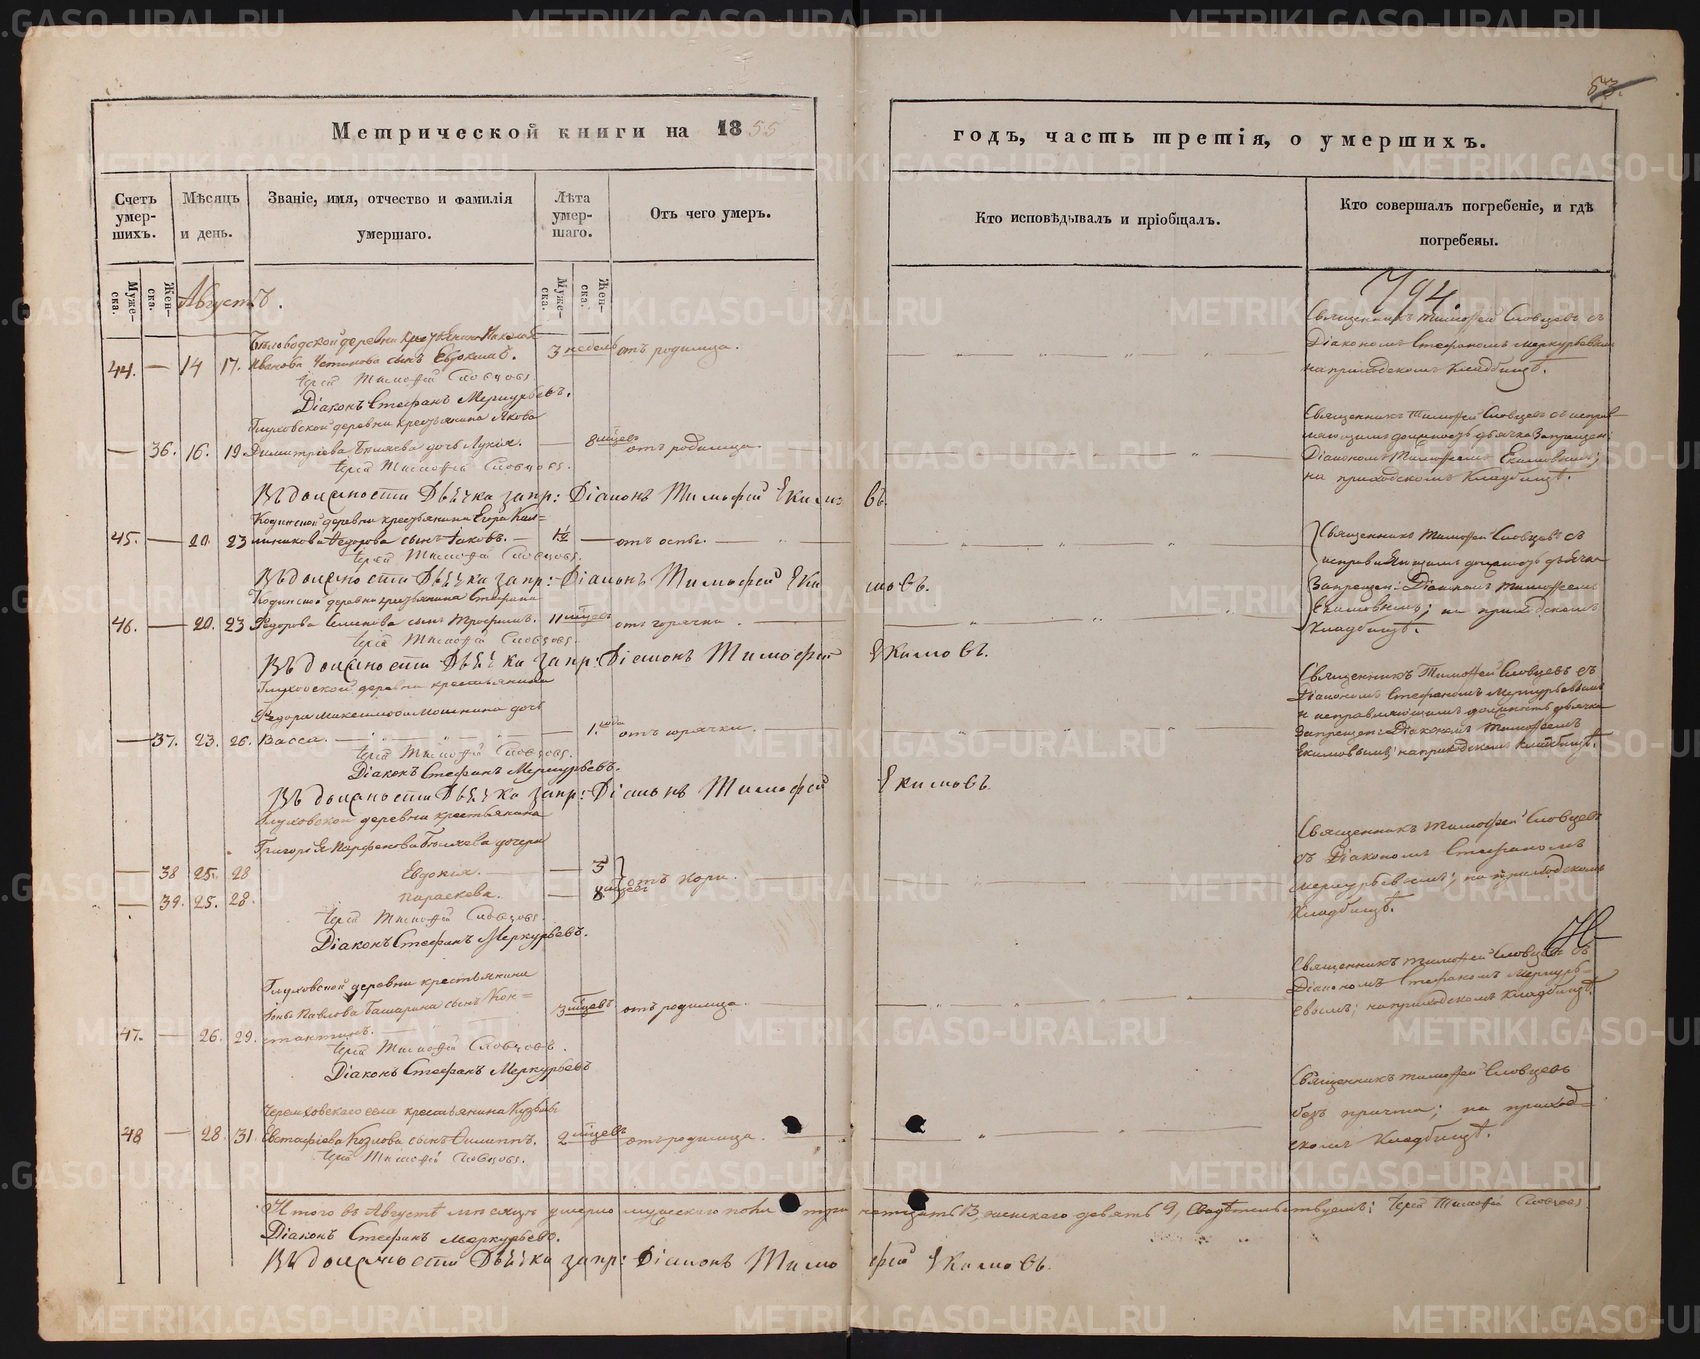 53.
Метрической книги на 1855
годъ, часть третія, о умершихъ.
Счетъ умер-шихъ.
Мѣсяцъ и день.
Званіе, имя, отчество и фамилія умершаго.
Лѣта умер-шаго.
Отъ чего умеръ.
Кто исповѣдывалъ и пріобщалъ.
Кто совершалъ погребеніе, и гдѣ погребены.
Муже-ска.
Жен-ска.
Муже-ска.
Жен-ска.
Августъ.
деревни крестьянина Николая
44. — 14 17. Иванова Устинова сынъ Евдокимъ. 3 недель отъ родимца.
Священникъ Тимофей Словцовъ съ
Діакономъ Стефаномъ Меркурьевымъ
на приходскомъ кладбищѣ.
Іерей Тимофей Словцовъ
Діаконъ Стефанъ Меркурьевъ.
Глуховской деревни крестьянина Якова
— 36. 16. 19. Димитріева Бѣляева дочь Лукія. — 8 мѣсецъ отъ родимца.
Священникъ Тимофей Словцовъ съ исправ-
ляющимъ должность дьячка Запрещен:
Діакономъ Тимофеемъ Екимовымъ;
на приходскомъ кладбищѣ.
Іерей Тимофей Словцовъ.
Въ должности Дьячка запр: Діаконъ Тимофей Екимовъ.
Кодинской деревни крестьянина Егора Кал-
45. — 20. 23 линикова Федорова сынъ Іаковъ. — 1½ — отъ оспы.
Священникъ Тимофей Словцовъ съ
исправляющимъ должность дьячка
Запрещен: Діакономъ Тимофеемъ
Екимовымъ; на приходскомъ
кладбищѣ.
Іерей Тимофей Словцовъ.
Въ должности Дьячка запр: Діаконъ Тимофей Екимовъ.
Кодинской деревни крестьянина Стефана
46. — 20. 23 Федорова сынъ Трофимъ. 11 мѣсецъ отъ горячки.
Іерей Тимофей Словцовъ.
Въ должности Дьячка запр: Діаконъ Тимофей Екимовъ.
Глуховской деревни крестьянина
Федора Максимова Мошнина дочь
— 37. 23. 26. Васса. — 1. года отъ горячки.
Священникъ Тимофей Словцовъ съ
Діакономъ Стефаномъ Меркурьевымъ
и исправляющимъ должность дьячка
Запрещен: Діакономъ Тимофеемъ
Екимовымъ; на приходскомъ кладбищѣ.
Іерей Тимофей Словцовъ.
Діаконъ Стефанъ Меркурьевъ.
Въ должности Дьячка запр: Діаконъ Тимофей Екимовъ.
Глуховской деревни крестьянина
Григорья Парфенова Бѣляева дочери
— 38 25. 28 Евдокия. — 5
— 39. 25. 28. Параскева. — 8 мѣсецъ отъ кори.
Священникъ Тимофей Словцовъ
съ Діакономъ Стефаномъ
Меркурьевымъ; на приходскомъ
кладбищѣ.
Іерей Тимофей Словцовъ.
Діаконъ Стефанъ Меркурьевъ.
Глуховской деревни крестьянина
Іоны Павлова Башарина сынъ Кон-
47. — 26. 29. стантинъ. 3 мѣсецъ отъ родимца.
Священникъ Тимофей Словцовъ съ
Діакономъ Стефаномъ Меркурь-
евымъ; на приходскомъ кладбищѣ.
Іерей Тимофей Словцовъ.
Діаконъ Стефанъ Меркурьевъ
села крестьянина Кузьмы
48 — 28. 31 Евстафіева Козлова сынъ Филиппъ. 2 мѣсецъ отъ родимца.
Священникъ Тимофей Словцовъ
безъ причта; на приход-
скомъ кладбищѣ.
Іерей Тимофей Словцовъ.
Итого въ Августѣ мѣсяцѣ умерло мужескаго пола тринатцать 13, женскаго девять 9, Свидѣтельствуемъ: Іерей Тимофей Словцовъ
Діаконъ Стефанъ Меркурьевъ.
Въ должности Дьячка запр: Діаконъ Тимофей Екимовъ.
METRIKI.GASO-URAL.RU